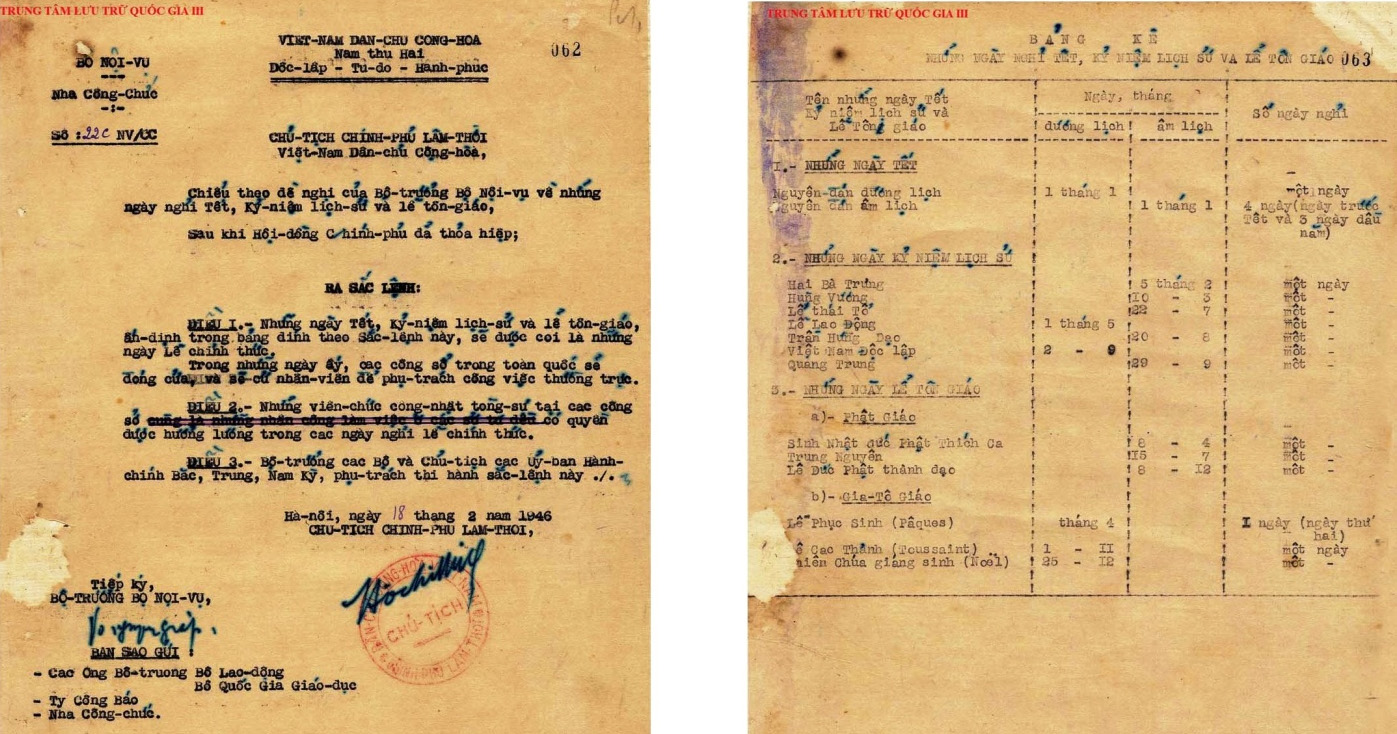 TRUNG TÂM LƯU TRỮ QUỐC GIA III
062
VIỆT-NAM DÂN-CHỦ CỘNG-HÒA
Năm thứ Hai
Độc-lập - Tự-do - Hạnh-phúc
BỘ NỘI-VỤ
Nha Công-Chức
-:-
Số :22C NV/CC
CHỦ-TỊCH CHÍNH-PHỦ LÂM-THỜI
Việt-Nam Dân-chủ Cộng-hòa,
Chiểu theo đề nghị của Bộ-trưởng Bộ Nội-vụ về những
ngày nghỉ Tết, Kỷ-niệm lịch-sử và lễ tôn-giáo,
Sau khi Hội-đồng Chính-phủ đã thỏa hiệp;
RA SẮC LỆNH:
ĐIỀU I.- Những ngày Tết, Kỷ-niệm lịch-sử và lễ tôn-giáo,
ấn-định trong bảng đính theo Sắc-lệnh này, sẽ được coi là những
ngày Lễ chính thức.
Trong những ngày ấy, các công sở trong toàn quốc sẽ
đóng cửa, và sẽ cử nhân-viên để phụ-trách công việc thường trực.
ĐIỀU 2.- Những viên-chức công-nhật tòng-sự tại các công
sở cũng là những nhân công làm việc ở các sở tư đều có quyền
được hưởng lương trong các ngày nghỉ lễ chính thức.
ĐIỀU 3.- Bộ-trưởng các Bộ và Chủ-tịch các Uỷ-ban Hành-
chính Bắc, Trung, Nam Kỳ, phụ-trách thi hành sắc-lệnh này ./.
Hà-nội, ngày 18 tháng 2 năm 1946
CHỦ-TỊCH CHÍNH-PHỦ LÂM-THỜI,
Hồ Chí Minh
CHỦ-TỊCH
Tiếp ký,
BỘ-TRƯỞNG BỘ NỘI-VỤ,
Võ Nguyên Giáp
BẢN SAO GỬI :
- Các Ông Bộ-trưởng Bộ Lao-động
Bộ Quốc Gia Giáo-dục
- Ty Công Báo
- Nha Công-chức.
TRUNG TÂM LƯU TRỮ QUỐC GIA III
BẢNG KÊ
NHỮNG NGÀY NGHỈ TẾT, KỶ NIỆM LỊCH SỬ VÀ LỄ TÔN GIÁO 063
Tên những ngày Tết
Kỷ niệm lịch sử và
Lễ Tôn giáo
Ngày, tháng
dương lịch ! âm lịch
Số ngày nghỉ
1.- NHỮNG NGÀY TẾT
Nguyên-đán dương lịch 1 tháng 1 một ngày
Nguyên đán âm lịch 1 tháng 1 4 ngày(ngày trước
Tết và 3 ngày đầu
năm)
2.- NHỮNG NGÀY KỶ NIỆM LỊCH SỬ
Hai Bà Trưng 5 tháng 2 một ngày
Hùng Vương 10 - 3 một -
Lê thái Tổ 22 - 7 một -
Lễ Lao Động 1 tháng 5 một -
Trần Hưng Đạo 20 - 8 một -
Việt Nam Độc lập 2 - 9 một -
Quang Trung 29 - 9 một -
3.- NHỮNG NGÀY LỄ TÔN GIÁO
a)- Phật Giáo
Sinh Nhật đức Phật Thích Ca 8 - 4 một -
Trung Nguyên 15 - 7 một -
Lễ Đức Phật thành đạo 8 - 12 một -
b)- Gia-Tô Giáo
Lễ Phục Sinh (Pâques) tháng 4 I ngày (ngày thứ
hai)
Lễ Các Thánh (Toussaint) 1 - II một ngày
Thiên Chúa giáng sinh (Noël) 25 - 12 một -